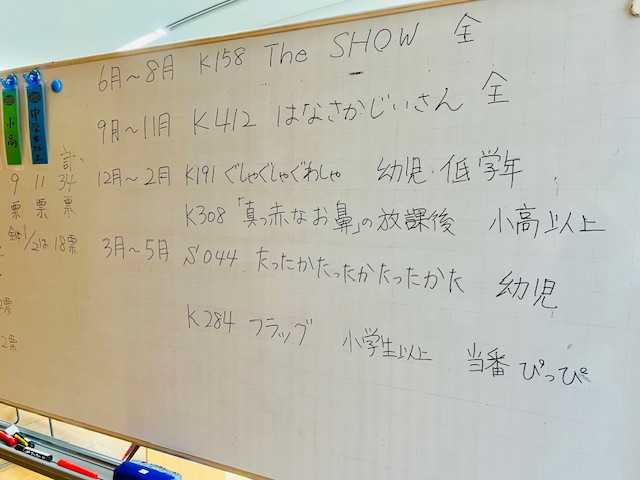 6月～8月 K158 The SHOW 全
9月～11月 K412 はなさかじいさん 全
12月～2月 K191 ぐしゃぐしゃぐわしゃ 幼児・低学年
K308「真っ赤なお鼻」の放課後 小高以上
3月～5月 S044 たったかたったかたったかた 幼児
K284 フラッグ 小学生以上 当番 ぴっぴ
小高
計
9 11 34
票 票 票
1/2は 18票
2票